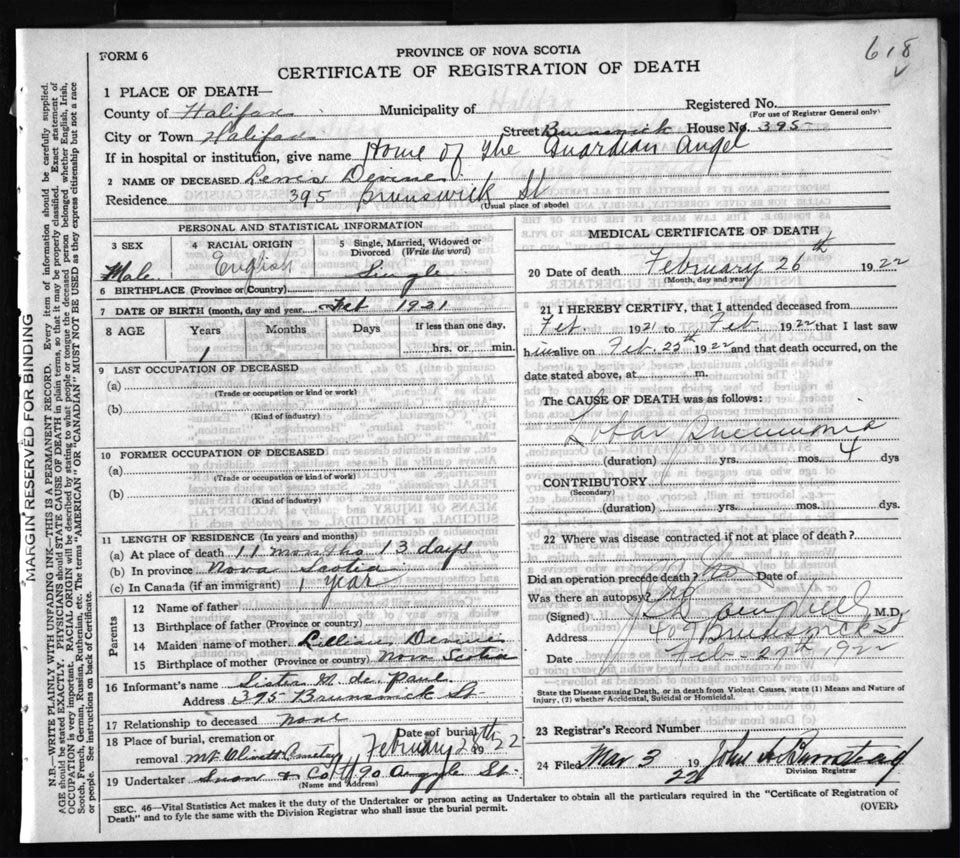 FORM 6
618
PROVINCE OF NOVA SCOTIA
CERTIFICATE OF REGISTRATION OF DEATH
1 PLACE OF DEATH—
County of Halifax Municipality of Registered No.
(For use of Registrar General only)
City or Town Halifax Street Brunswick House No. 395
If in hospital or institution, give name Home of The Guardian Angel
2 NAME OF DECEASED Lewis Devine
Residence 395 Brunswick St
(Usual place of abode)
PERSONAL AND STATISTICAL INFORMATION
3 SEX 4 RACIAL ORIGIN 5 Single, Married, Widowed or Divorced (Write the word)
Male English Single
6 BIRTHPLACE (Province or Country)
7 DATE OF BIRTH (month, day and year) Feb 1921
8 AGE Years Months Days If less than one day,
1 hrs. or min.
9 LAST OCCUPATION OF DECEASED
(a)
(Trade or occupation or kind or work)
(b)
(Kind of industry)
10 FORMER OCCUPATION OF DECEASED
(a)
(Trade or occupation or kind of work)
(b)
(Kind of industry)
11 LENGTH OF RESIDENCE (In years and months)
(a) At place of death 11 months 13 days
(b) In province Nova Scotia
(c) In Canada (if an immigrant) 1 year
Parents
12 Name of father
13 Birthplace of father (Province or country)
14 Maiden name of mother Lillian Devine
15 Birthplace of mother (Province or country) Nova Scotia
16 Informant's name Sister M. de Paul
Address 395 Brunswick St
17 Relationship to deceased none
18 Place of burial, cremation or removal Mt Olivet Cemetery Date of burial February 28th 1922
19 Undertaker Snow & Co. Ltd 90 Argyle St.
(Name and Address)
MEDICAL CERTIFICATE OF DEATH
20 Date of death February 26th 1922
(Month, day and year)
21 I HEREBY CERTIFY, that I attended deceased from
Feb. 1921 to Feb 1922 that I last saw
him alive on Feb. 25th 1922 and that death occurred, on the
date stated above, at m.
The CAUSE OF DEATH was as follows:
Lobar Pneumonia
(duration) yrs. mos. 4 dys
CONTRIBUTORY
(Secondary)
(duration) yrs. mos. dys.
22 Where was disease contracted if not at place of death?
Did an operation precede death? No Date of
Was there an autopsy? No
(Signed) M.D.
Address 407 Brunswick St
Date Feb 27th 1922
State the Disease causing Death, or in death from Violent Causes, state (1) Means and Nature of Injury, (2) whether Accidental, Suicidal or Homicidal.
23 Registrar's Record Number
24 Filed Mar 3 1922 John A Bumstead
Division Registrar
SEC. 46—Vital Statistics Act makes it the duty of the Undertaker or person acting as Undertaker to obtain all the particulars required in the "Certificate of Registration of Death" and to fyle the same with the Division Registrar who shall issue the burial permit.
(OVER)
MARGIN RESERVED FOR BINDING
N.B.—WRITE PLAINLY WITH UNFADING INK—THIS IS A PERMANENT RECORD. Every item of information should be carefully supplied.
AGE should be stated EXACTLY. PHYSICIANS should STATE CAUSE OF DEATH in plain terms, so that it may be properly classified. Exact statement of
OCCUPATION is very important. RACIAL ORIGIN will be described by stating to what people or tongue the deceased person belonged whether English, Irish,
Scotch, French, German, Russian, Ruthenian, etc. The terms "AMERICAN" OR "CANADIAN" MUST NOT BE USED as they express citizenship but not a race
or people. See instructions on back of Certificate.